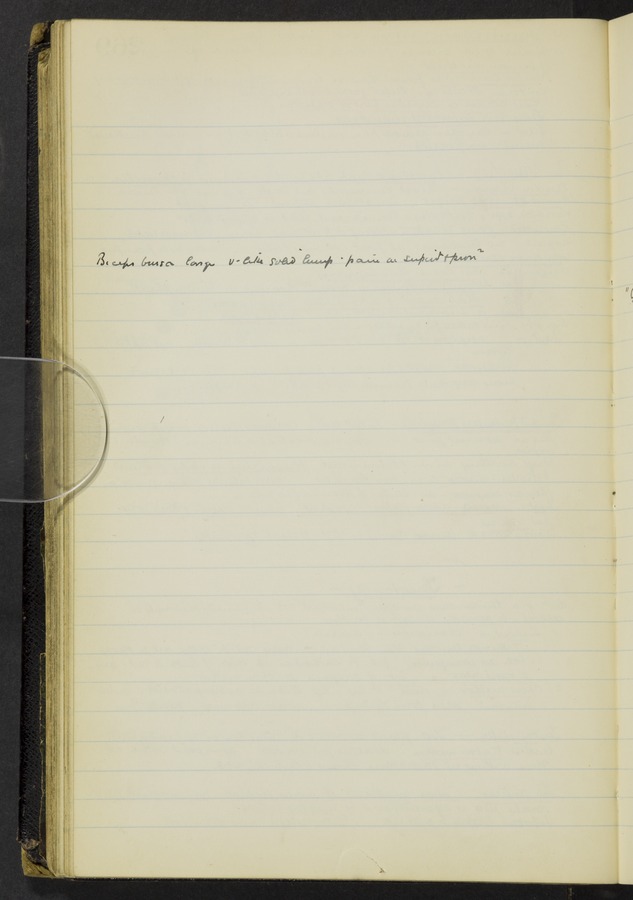 Biceps bursa large v. like solid lump. pain on supin & pron